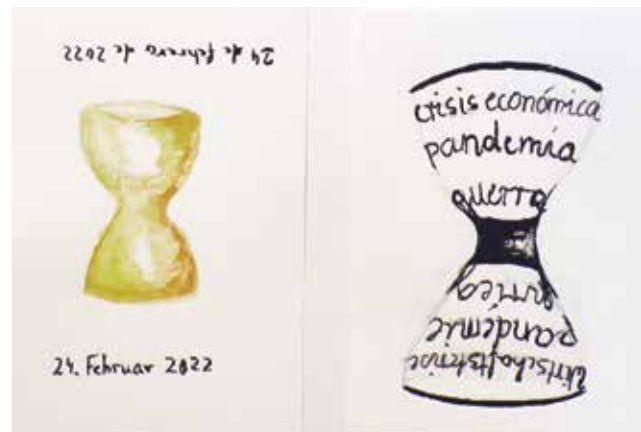 24 de febrero de 2022
24. Februar 2022
crisis económica
pandemia
guerra
pandemie
Wirtschaftskrise